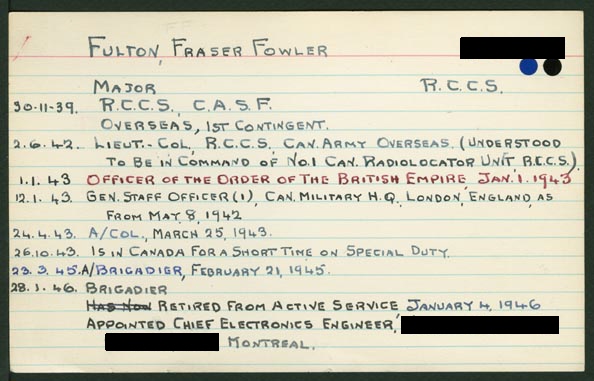 FULTON, FRASER FOWLER
MAJOR R.C.C.S.
30-11-39. R.C.C.S., C.A.S.F.
OVERSEAS, 1ST CONTINGENT.
2.6.42. LIEUT.-COL, R.C.C.S, CAN. ARMY OVERSEAS. (UNDERSTOOD
TO BE IN COMMAND OF NO.1 CAN. RADIOLOCATOR UNIT, R.C.C.S.)
1.1.43 OFFICER OF THE ORDER OF THE BRITISH EMPIRE, JAN. 1. 1943
12.1.43. GEN. STAFF OFFICER (1), CAN. MILITARY H.Q., LONDON, ENGLAND, AS
FROM MAY 8, 1942
24.4.43. A/COL., MARCH 25, 1943.
26.10.43. IS IN CANADA FOR A SHORT TIME ON SPECIAL DUTY.
23.3.45. A/BRIGADIER, FEBRUARY 21, 1945.
28.1.46. BRIGADIER
HAS NOW RETIRED FROM ACTIVE SERVICE JANUARY 4, 1946
APPOINTED CHIEF ELECTRONICS ENGINEER,
MONTREAL.